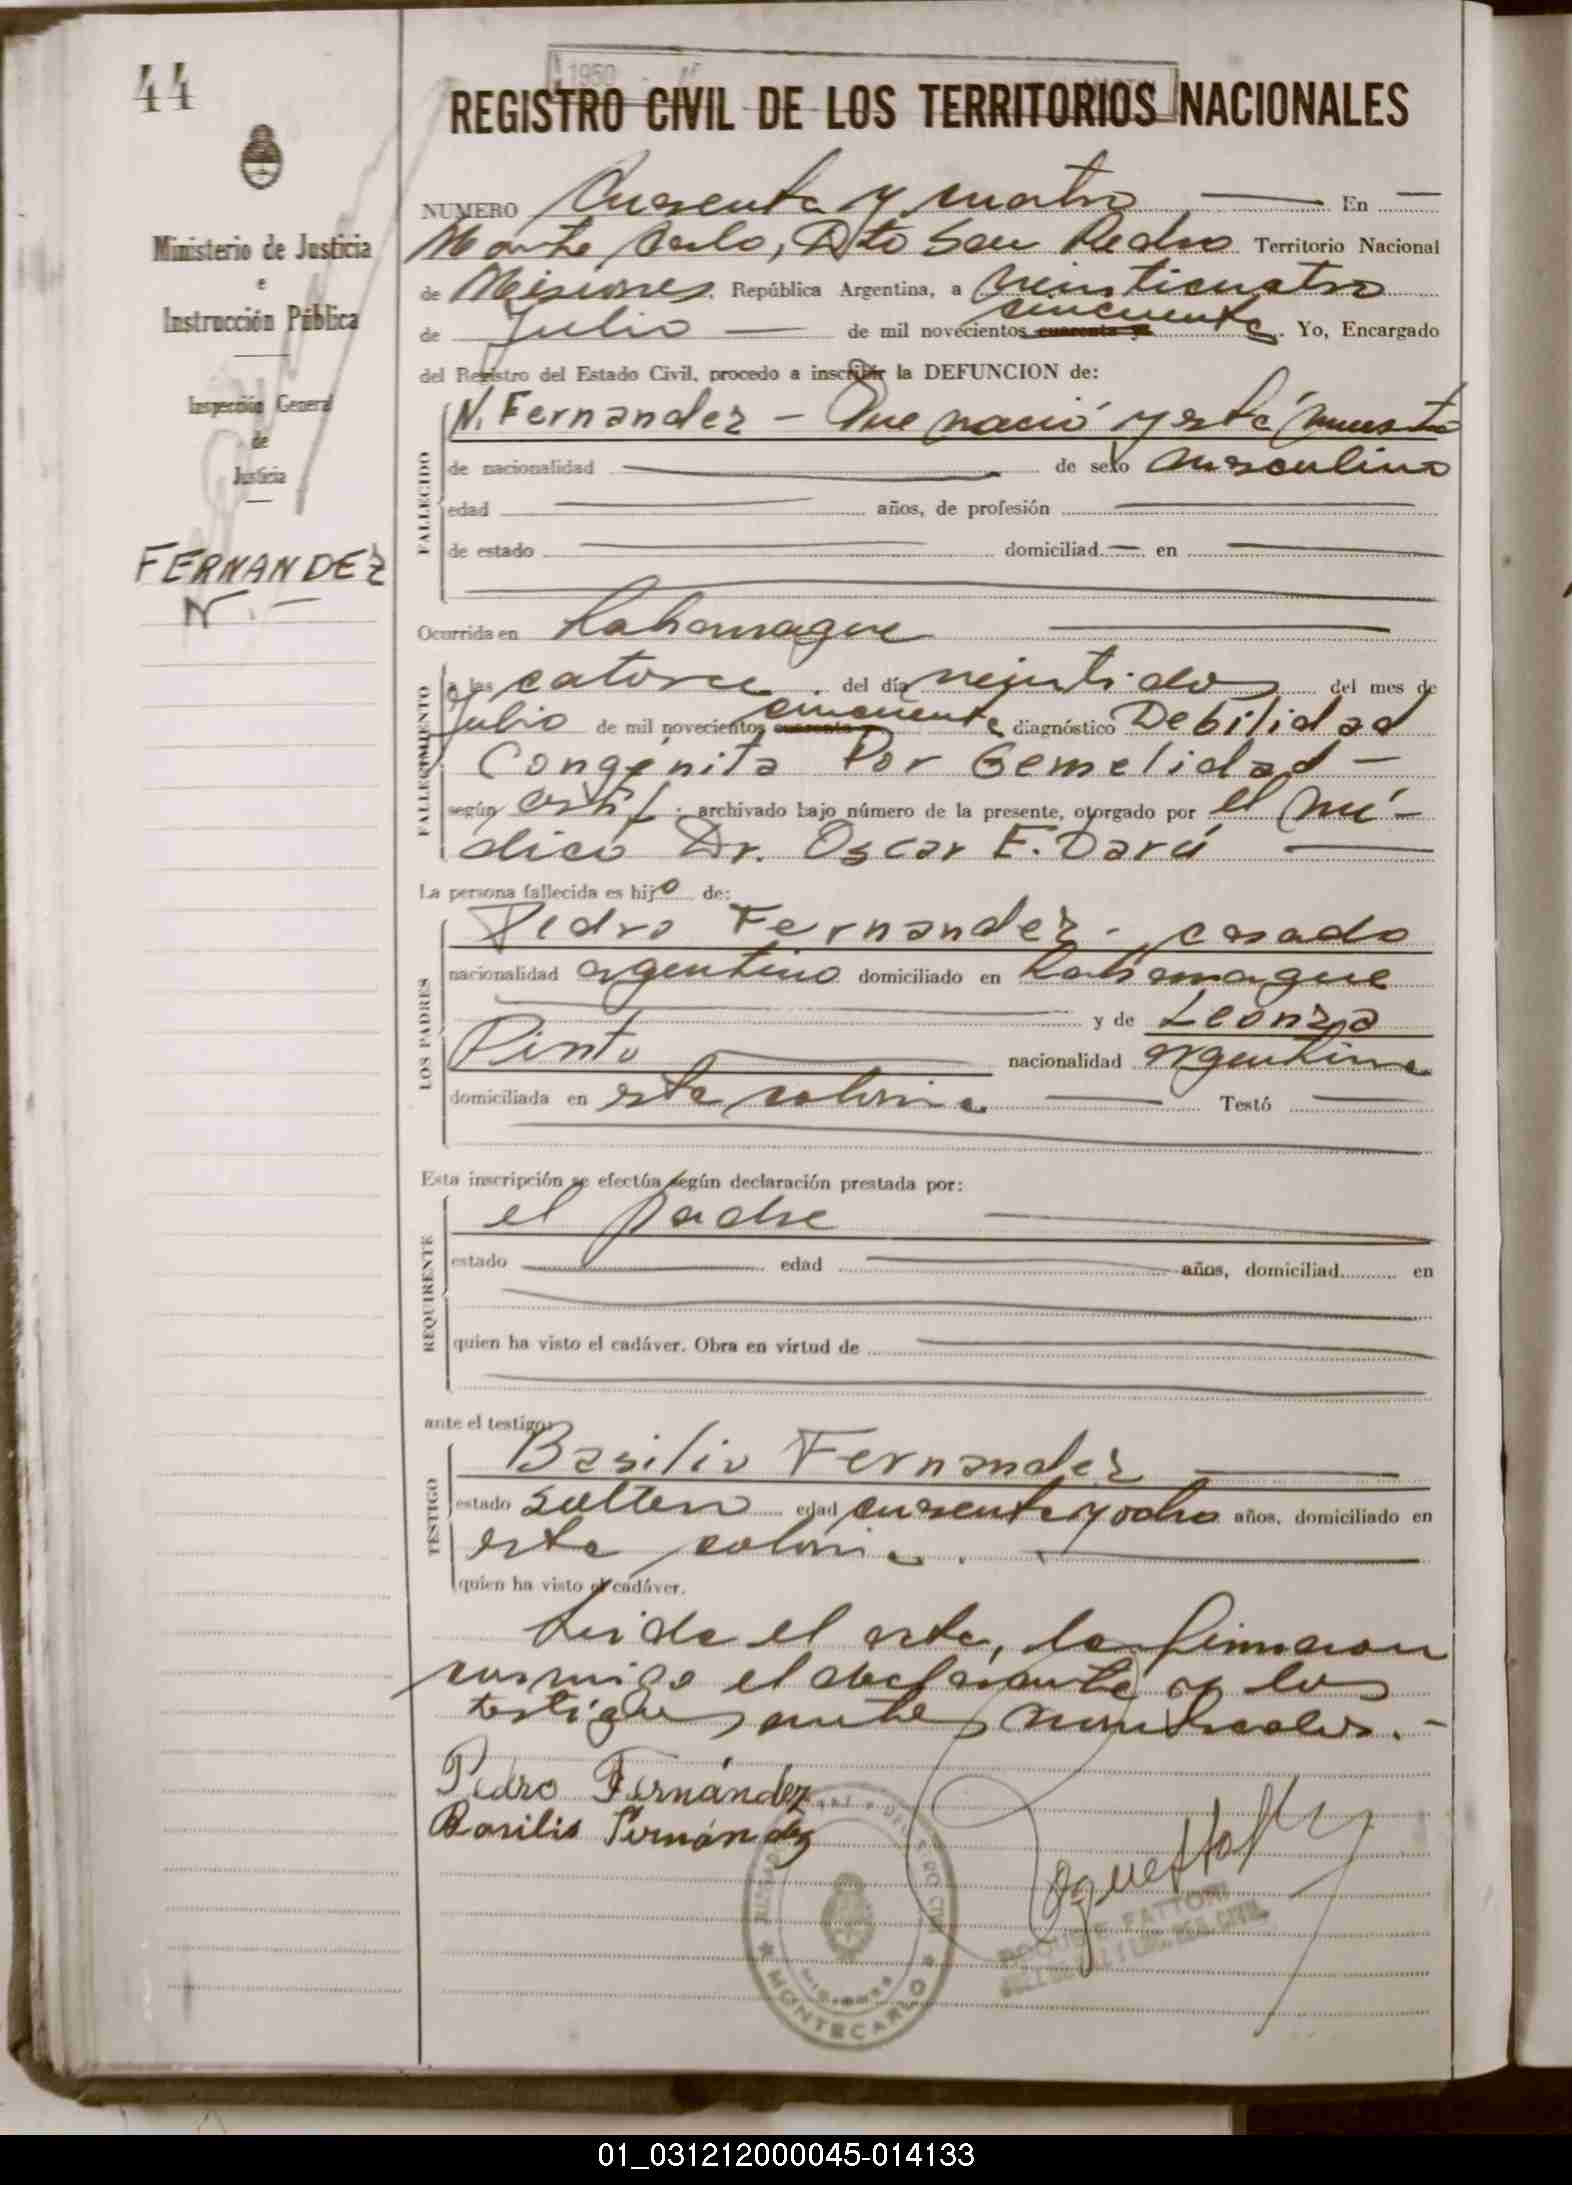 44
1950
REGISTRO CIVIL DE LOS TERRITORIOS NACIONALES
Ministerio de Justicia
e
Instrucción Pública
Inspección General
de
Justicia
FERNANDEZ
N. —
NUMERO Cuarenta y cuatro — En —
Monte Carlo, Dto San Pedro Territorio Nacional
de Misiones, República Argentina, a veinticuatro
de Julio — de mil novecientos cuarenta y cincuenta. Yo, Encargado
del Registro del Estado Civil, procedo a inscribir la DEFUNCION de:
FALLECIDO
N. Fernandez - Que nació y está muerto
de nacionalidad — de sexo masculino
edad — años, de profesión —
de estado — domiciliad — en —
Ocurrida en —
FALLECIMIENTO
a las catorce . del día veintidos del mes de
Julio de mil novecientos cuarenta cincuenta diagnóstico Debilidad
Congénita Por Gemelidad —
según certif. archivado bajo número de la presente, otorgado por el mé-
dico Dr. Oscar E. Darú —
La persona fallecida es hijo de:
LOS PADRES
Pedro Fernandez - casado
nacionalidad argentino domiciliado en
— y de Leonza
Pinto — nacionalidad argentina
domiciliada en esta colonia — Testó —
Esta inscripción se efectúa según declaración prestada por:
REQUIRENTE
el padre —
estado — edad — años, domiciliad en
quien ha visto el cadáver. Obra en virtud de —
ante el testigo:
TESTIGO
Basilio Fernandez —
estado soltero edad cuarenta y ocho años, domiciliado en
esta colonia. —
quien ha visto el cadáver.
Leida el acta, la firmaron
conmigo el declarante y los
testigos antes nombrados. -
Pedro Fernández
Basilio Fernández
ROQUE FATTORI
MISIONES
MONTECARLO
01_031212000045-014133